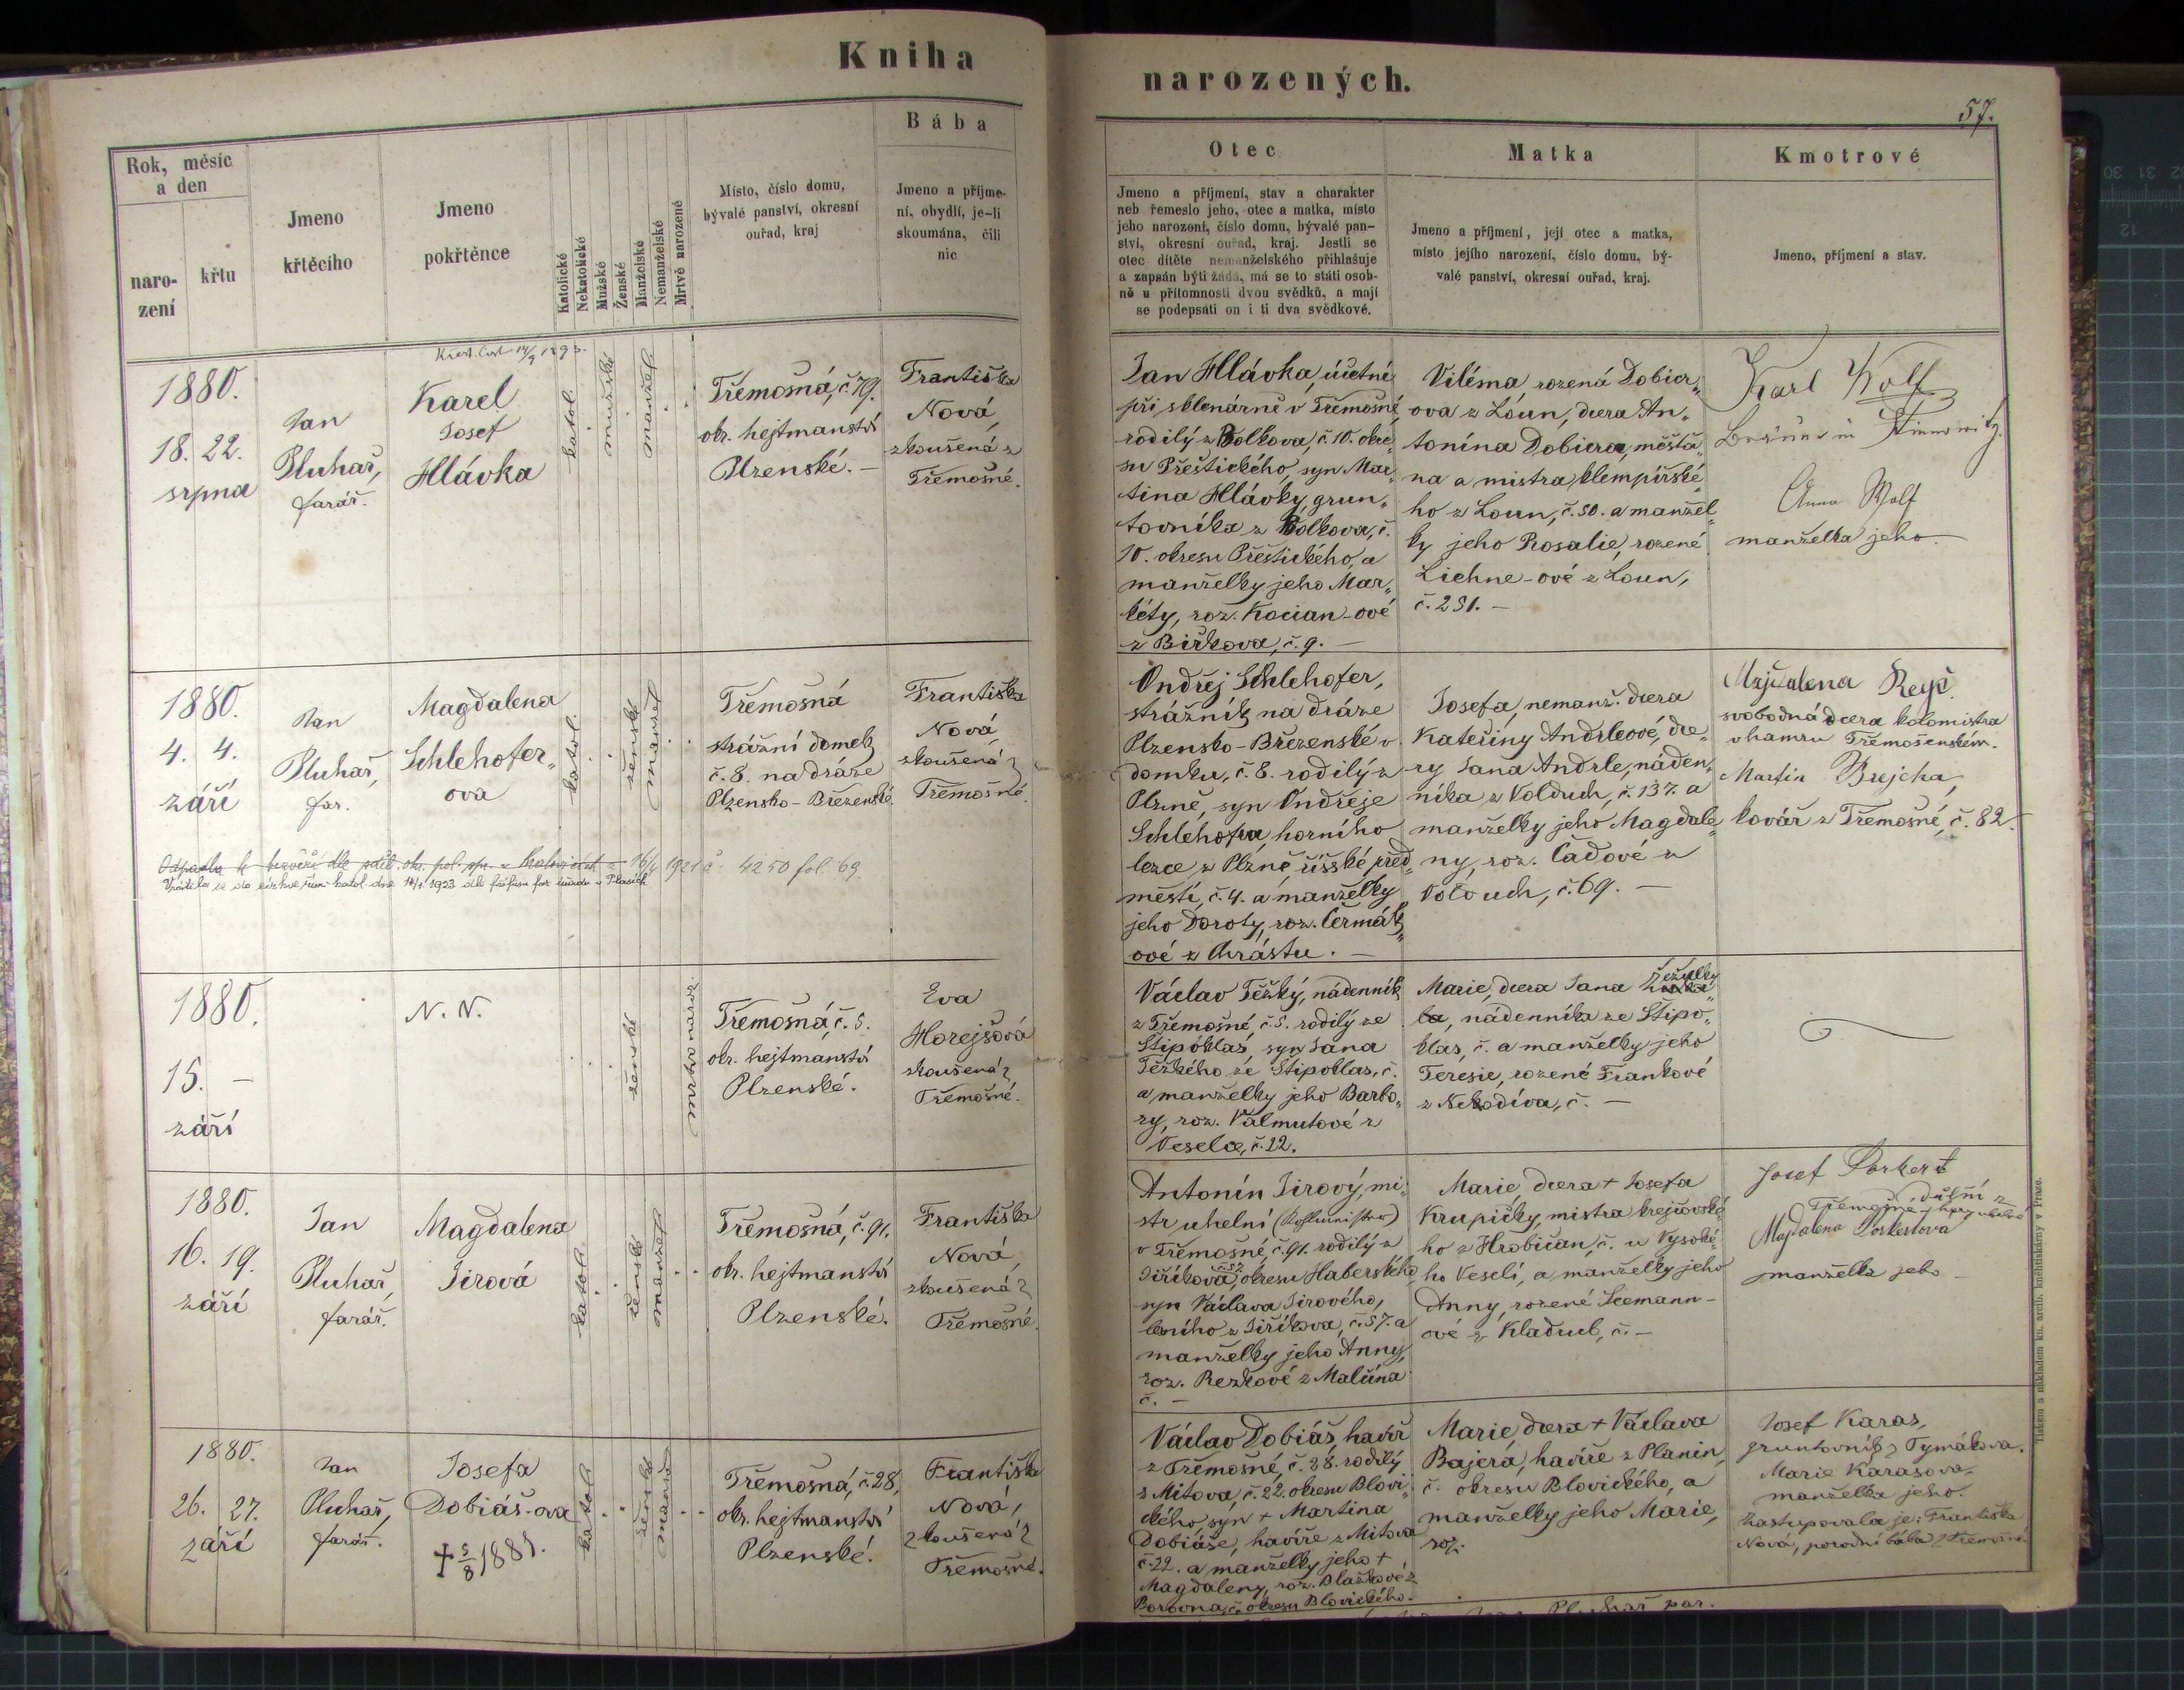 Kniha
narozených.
57.
Rok, měsíc
a den
naro-
zení
křtu
Jmeno
křtěcího
Jmeno
pokřtěnce
Katolické
Nekatolické
Mužské
Ženské
Manželské
Nemanželské
Mrtvě narozené
Místo, číslo domu,
bývalé panství, okresní
ouřad, kraj
Bába
Jmeno a příjme-
ní, obydlí, je-li
skoumána, čili
nic
Otec
Jmeno a příjmení, stav a charakter
neb řemeslo jeho, otec a matka, místo
jeho narození, číslo domu, bývalé pan-
ství, okresní ouřad, kraj. Jestli se
otec dítěte nemanželského přihlašuje
a zapsán býti žádá, má se to státi osob-
ně u přítomnosti dvou svědků, a mají
se podepsati on i ti dva svědkové.
Matka
Jmeno a příjmení, její otec a matka,
místo jejího narození, číslo domu, bý-
valé panství, okresní ouřad, kraj.
Kmotrové
Jmeno, příjmení a stav.
1880.
18. 22.
srpna
Jan
Pluhař,
farář.
Karel
Josef
Hlávka
katol.
mužské
manžel
Třemošná, č. 79.
okr. hejtmanství
Plzenské. —
Františka
Nová,
zkoušená z
Třemošné.
Jan Hlávka, účetní
při sklenárně v Třemošné
rodilý z Bolkova, č. 10. okre-
su Přeštického, syn Mar-
tina Hlávky, grun-
tovníka z Bolkova, č.
10. okresu Přeštického, a
manželky jeho Mar-
kéty, roz. Kocian-ové
z Biřkova, č. 9. —
Viléma rozená Dobier-
ova z Loun, dcera An-
tonína Dobiera, měšťa-
na a mistra klempířské-
ho z Loun, č. 50. a manžel-
ky jeho Rosalie, rozené
Liehne-ové z Loun,
č. 251. —
Karl Wolf
Anna Wolf
manželka jeho
1880.
4. 4.
září
Jan
Pluhař,
far.
Magdalena
Schlehofer-
ova
katol.
ženské
manžel
Třemošná
strážní domek
č. 8. na dráze
Plzensko-Březenské
Františka
Nová,
zkoušená z
Třemošné.
1921 č. 4250 fol. 69
Ondřej Schlehofer,
strážník na dráze
Plzensko-Březenské v
domku, č. 8. rodilý z
Plzně, syn Ondřeje
Schlehofra, horního
lezce z Plzně, říšské před-
městí, č. 4. a manželky
jeho Doroty, roz. Čermák-
ové z Chrástu. —
Josefa, nemanž. dcera
Kateřiny Andrleové, dce-
ry Jana Andrle, náden-
níka z Volduch, č. 137. a
manželky jeho Magdale-
ny, roz. Čadové z
Volduch, č. 69. —
svobodná dcera kolomistra
v hamru Třemošenském.
Martin Brejcha,
kovář z Třemošné, č. 82.
1880.
15. —
září
N. N.
ženský
mrtvě naroz.
Třemošná, č. 5.
okr. hejtmanství
Plzenské.
Eva
Horejšová
zkoušená z
Třemošné.
Václav Težký, nádenník
z Třemošné, č. 5. rodilý ze
Štipoklas, syn Jana
Težkého ze Štipoklas, č.
a manželky jeho Barbo-
ry, roz. Valmutové z
Vesela, č. 12.
Marie, dcera Jana Žežulky
la, nádenníka ze Štipo-
klas, č. a manželky jeho
Teresie, rozené Frankové
z Nekodíva, č. —
1880.
16. 19.
září
Jan
Pluhař,
farář.
Magdalena
Jirová
katol.
ženské
manžel
Třemošná, č. 91.
okr. hejtmanství
Plzenské.
Františka
Nová,
zkoušená z
Třemošné.
Antonín Jirový, mi-
str uhelní (Kohlmistr)
v Třemošné, č. 91. rodilý z
Jiříkova, okresu Haberského
syn Václava Jirového,
z Jiříkova, č. 57. a
manželky jeho Anny,
roz. Rezkové z Malčína
č. —
Marie, dcera + Josefa
Krupičky, mistra krejčovské-
ho z Hrobičan, č. u Vysoké-
ho Veselí, a manželky jeho
Anny, rozené Seemann-
ové z Kladrub, č. —
Josef Porkert
manželka jeho
1880.
26. 27.
září
Jan
Pluhař,
farář.
Josefa
Dobiáš-ova
+ 5/8 1881.
katol
ženské
manžel
Třemošná, č. 28,
okr. hejtmanství
Plzenské.
Františka
Nová,
zkoušená z
Třemošné.
Václav Dobiáš, havíř
z Třemošné, č. 28. rodilý
z Mitova, č. 22. okresu Blovi-
ckého, syn + Martina
Dobiáše, havíře z Mitova
č. 22. a manželky jeho +
Magdaleny, roz. Blažkové z
Borovna, č. okresu Blovického.
Marie, dcera + Václava
Bajera, havíře z Planin,
č. okresu Blovického, a
manželky jeho Marie,
roz.
Josef Karas,
gruntovník z Tymákova.
Marie Karasova,
manželka jeho.
Zastupovala je: Františka
Nová, porodní bába z Třemošné.